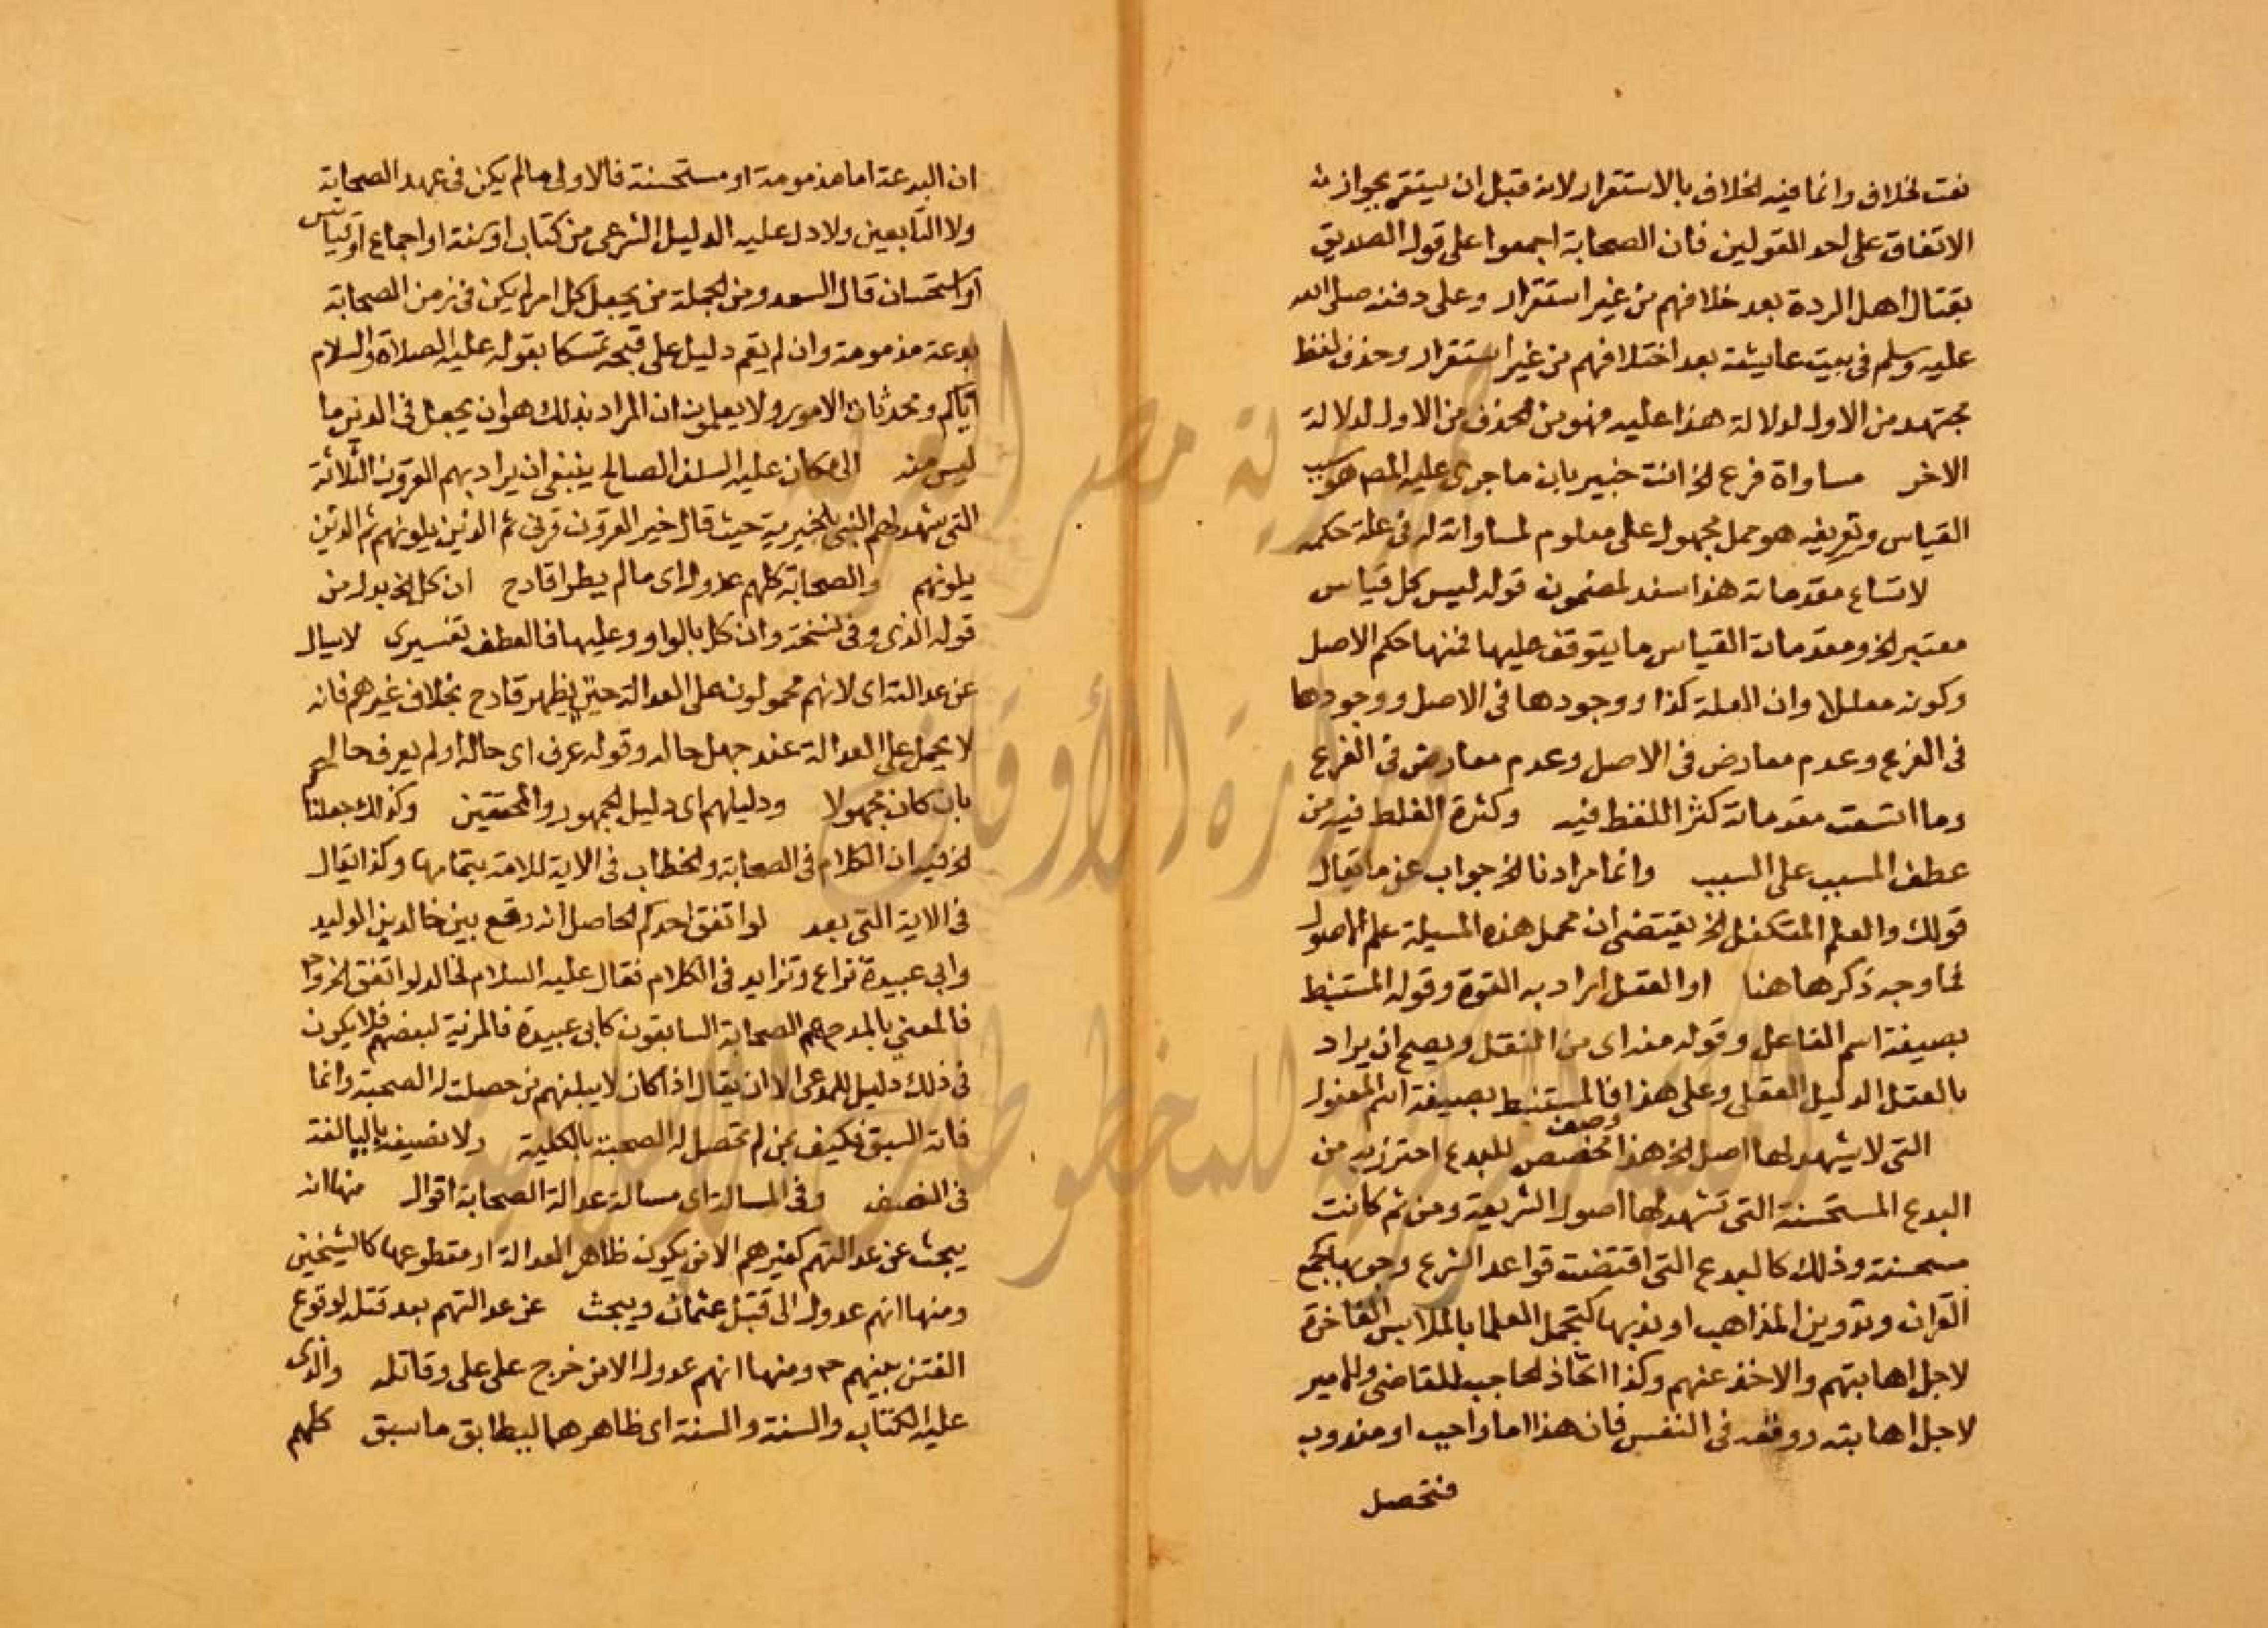 نعت لخلاف وانما فيه الخلاف بالاستقرار لانه قبل ان يستقر يجوز
الاتفاق على احد القولين فان الصحابة اجمعوا على قول الصديق
بقتال اهل الردة بعد خلافهم من غير استقرار وعلى دفنه صلى الله
عليه وسلم فى بيت عايشة بعد اختلافهم من غير استقرار وحذف لفظ
مجتهد من الاول لدلالة هذا عليه فهو من الحذف من الاول لدلالة
الاخر مساواة فرع الخ انت خبير بان ما جرى عليه المص هو سبب
القياس وتعريفه هو حمل مجهول على معلوم لمساواته له فى علة حكمه
لاتساع مقدماته هذا سند لمضمون قوله ليس كل قياس
معتبر الخ ومقدمات القياس ما يتوقف عليها فمنها حكم الاصل
وكونه معللا وان العلة كذا ووجودها فى الاصل ووجودها
فى الفرع وعدم معارض فى الاصل وعدم معارض فى الفرع
وما اتسعت مقدماته كثر اللفظ فيه وكثرة الغلط فيه من
عطف المسبب على السبب وانما مرادنا الخ جواب عن ما يقال
قولك والعلم المتكفل الخ يقتضى ان محمل هذه المسيلة علم الاصول
فما وجه ذكرها هنا او العقل اراد به القوة وقوله المستنبط
بصيغة اسم الفاعل وقوله منه اى من النقل ويصح ان يراد
بالعقل الدليل العقلى وعلى هذا فالمستنبط بصيغة اسم المفعول
التى لا يشهد لها اصل الخ هذا وصف مخصص للبدع احترز به من
البدع المستحسنة التى تشهد لها اصول الشريعة ومن ثم كانت
مستحسنة وذلك كالبدع التى اقتضت قواعد الشرع وجوبها كجمع
القران وتدوين المذاهب او ندبها كتجمل العلما بالملابس الفاخرة
لاجل اهابتهم والاخذ عنهم وكذا اتخاذ الحاجب للقاضى وللامير
لاجل اهابته ووقعه فى النفس فان هذا اما واجب او مندوب
فتحصل
ان البدعة اما مذمومة او مستحسنة فالاولى ما لم يكن فى عهد الصحابة
ولا التابعين ولا دل عليه الدليل الشرعى من كتاب او سنة او اجماع او قياس
او استحسان قال السعد ومن الجملة من يجعل كل امر لم يكن فى زمن الصحابة
بدعة مذمومة وان لم يقم دليل على قبحه تمسكا بقوله عليه الصلاة والسلام
اياكم ومحدثات الامور ولا يعلمون ان المراد بذلك هو ان يجعل فى الدين ما
ليس منه الى ما كان عليه السلف الصالح ينبغى ان يراد بهم القرون الثلاثة
التى شهد لهم النبى بالخيرية حيث قال خير القرون قرنى ثم الذين يلونهم ثم الذين
يلونهم والصحابة كلهم عدول اى ما لم يطرا قادح ان كل الخ بدل من
قوله الذى وفى نسخة وان كل بالواو وعليها فالعطف تفسيرى لا يسال
عن عدالته اى لانهم محمولون على العدالة حتى يظهر قادح بخلاف غيرهم فانه
لا يحمل على العدالة عند جهل حاله وقوله عرف اى حاله او لم يعرف حالهم
بان كان مجهولا ودليلهم اى دليل الجمهور والمحققين وكذلك جعلنا
الخ فيه ان الكلام فى الصحابة والخطاب فى الاية للامة بتمامها وكذا يقال
فى الاية التى بعد لو انفق احدكم الحاصل انه وقع بين خالد بن الوليد
وابى عبيدة نزاع وتزايد فى الكلام فقال عليه السلام لخالد لو انفق الخ وح
فالمعنى بالمدح هم الصحابة السابقون كابى عبيدة فالمزية لبعضهم فلا يكون
فى ذلك دليل للمدعى الا ان يقال اذا كان لا يبلغهم من حصلت له الصحبة وانما
فاته السبق فكيف بمن لم تحصل له الصحبة بالكلية ولا نصيفه بالبا لغة
فى النصف وفى المسالة اى مسالة عدالة الصحابة اقوال منها انه
يبحث عن عدالتهم كغيرهم الا من يكون ظاهر العدالة او مقطوعها كالشيخين
ومنها انهم عدول الى قتل عثمان ويبحث عن عدالتهم بعد قتله لوقوع
الفتن بينهم ح ومنها انهم عدول الا من خرج على على وقاتله والذى
عليه الكتاب والسنة والسنة اى ظاهرهما ليطابق ما سبق كلهم